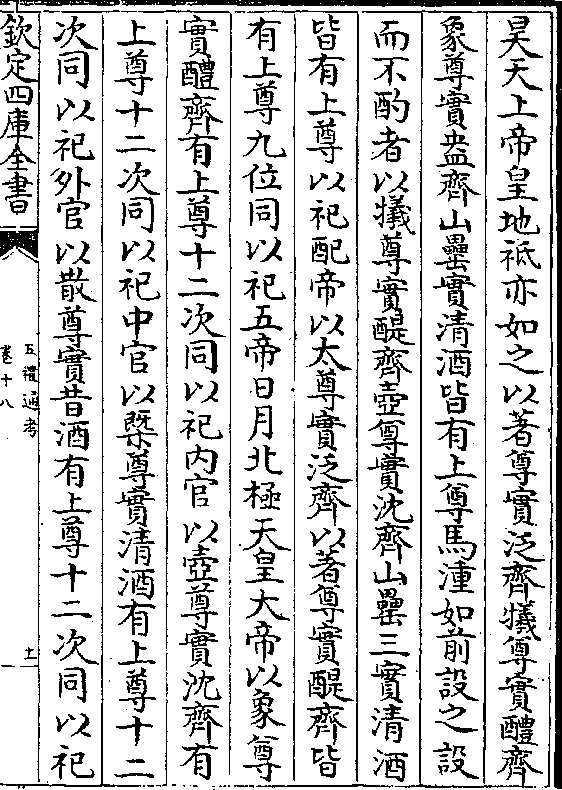 昊天上帝皇地祇亦如之以著尊實泛齊犧尊實醴齊
象尊實盎齊山罍實清酒皆有上尊馬湩如前設之設
而不酌者以犧尊實醍齊壺尊實沈齊山罍三實清酒
皆有上尊以祀配帝以太尊實泛齊以著尊實醍齊皆
有上尊九位同以祀五帝日月北極天皇大帝以象尊
實醴齊有上尊十二次同以祀内官以壺尊實沈齊有
上尊十二次同以祀中官以槩尊實清酒有上尊十二
次同以祀外官以散尊實昔酒有上尊十二次同以祀
欽定四庫全書
五禮通考
卷十八
十一